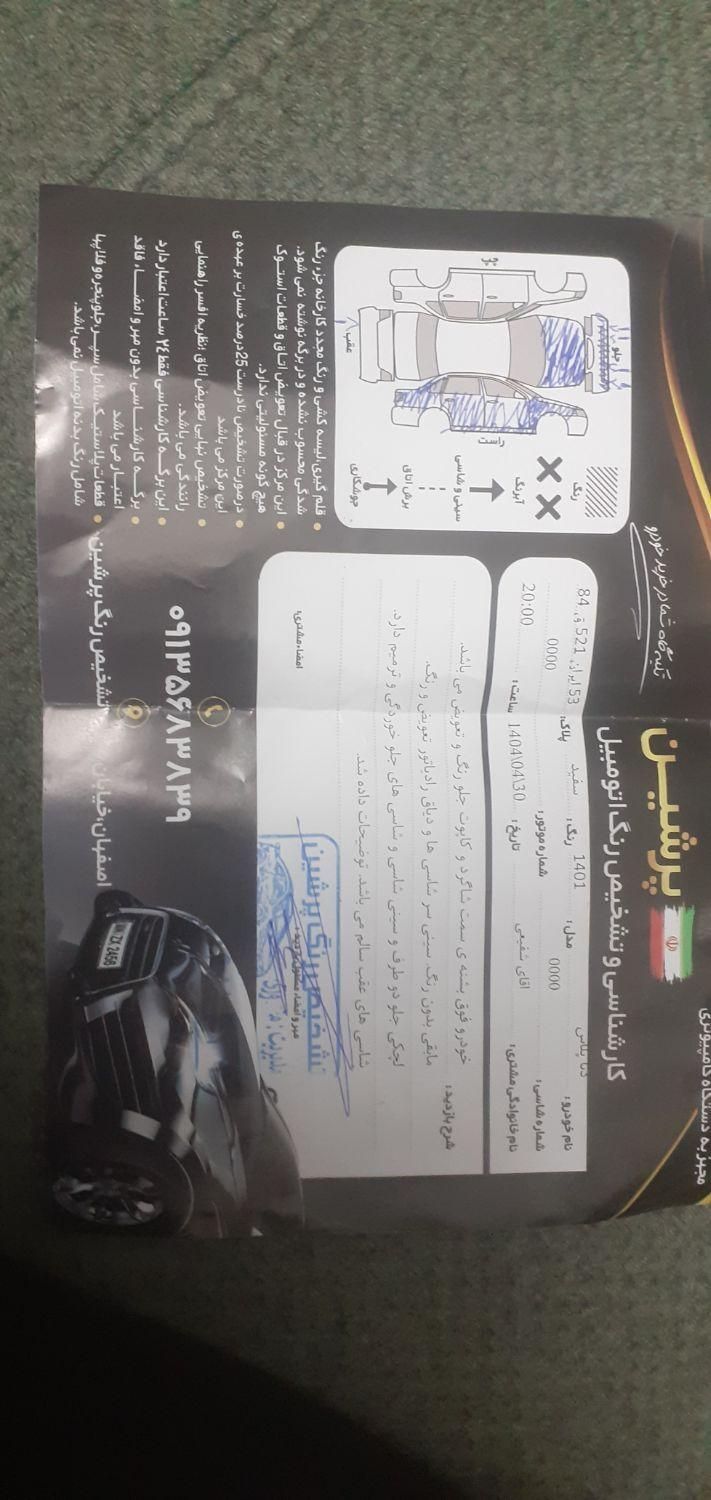 مجهز به دستگاه کامپیوتری
پرشین
کارشناسی و تشخیص رنگ اتومبیل
تکیه گاه شما در خرید خودرو
نام خودرو: دنا پلاس مدل: 1401 رنگ: سفید پلاک: 53 ایران 521 ق 84
شماره شاسی: 0000 شماره موتور: 0000
نام خانوادگی مشتری: اقای شفیعی تاریخ: 1404\04\30 ساعت: 20:00
شرح بازدید:
خودرو فوق بشنه ی سمت شاگرد و کاپوت جلو رنگ و تعویض می باشد.
مابقی بدون رنگ. سینی سر شاسی ها و دیاق رادیاتور تعویض و رنگ.
لچکی جلو دو طرف و سینی شاسی و شاسی های جلو خوردگی و ترمیم دارد.
شاسی های عقب سالم می باشد. توضیحات داده شد.
تشخیص رنگ پرشین
امضاء مشتری:
رنگ
آبرنگ
سینی و شاسی
برش اتاق
جوشکاری
جلو
عقب
راست
قلم گیری لیسه کشی و رنگ مجدد کارخانه جزء رنگ
شدگی محسوب نشده و در برگه نوشته نمی شود.
این مرکز در قبال تعویض اتاق و قطعات استوک
هیچ گونه مسئولیتی ندارد.
درصورت تشخیص نادرست 25درصد خسارت بر عهده ی
این مرکز می باشد
تشخیص نهایی تعویض اتاق، نظریه افسر راهنمایی
رانندگی می باشد.
این برگه کارشناسی فقط ۲۴ ساعت اعتبار دارد
برگه کارشناسی بدون مهر و امضاء، فاقد
اعتبار می باشد
قطعات پلاستیک شامل سپر، جلوپنجره و فلاپها
شامل رنگ بدنه اتومبیل نمی باشد.
۰۹۱۳۵۶۸۳۸۳۹
اصفهان، خیابان
تشخیص رنگ پرشین